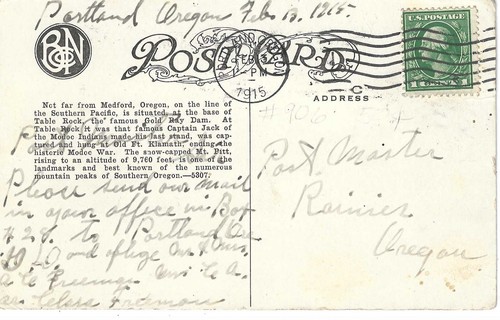 Portland Oregon Feb 13, 1915.
PNC
POST CARD
PORTLAND, OREGON
FEB 13
PM
1915
U.S. POSTAGE
1 CENTS 1
ADDRESS
Not far from Medford, Oregon, on the line of
the Southern Pacific, is situated, at the base of
Table Rock, the famous Gold Ray Dam. At
Table Rock it was that famous Captain Jack of
the Modoc Indians made his last stand, was cap-
tured and hung at Old Ft. Klamath, ending the
historic Modoc War. The snow-capped Mt. Pitt,
rising to an altitude of 9,760 feet, is one of the
landmarks and best known of the numerous
mountain peaks of Southern Oregon.—5307.
Please send our mail
in your office in Box
#28. to Portland Ore
Freeman
Freeman
# 906
Post Master
Rainier
Oregon